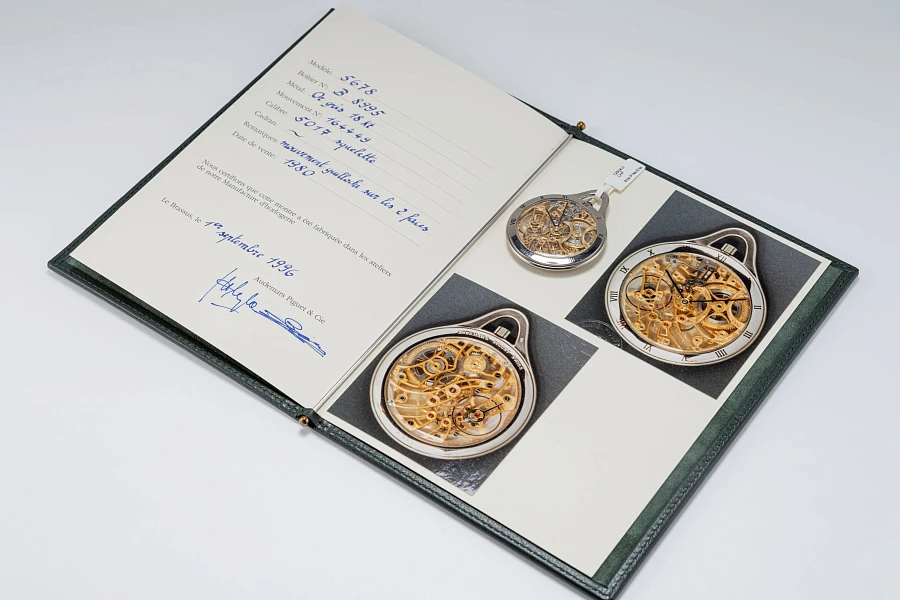 Modèle: 5678
Boîtier N°: B 8995
Métal: Or gris 18 Kt
Mouvement N° 164449
Calibre: 5017 squelette
Cadran: ~
Remarques: mouvement guilloché sur les 2 faces
Date de vente: 1980
Nous certifions que cette montre a été fabriquée dans les ateliers
de notre Manufacture d'horlogerie
Le Brassus, le 1er septembre 1996
Audemars Piguet & Cie
XII
X
IX
VIII
VI
II
III